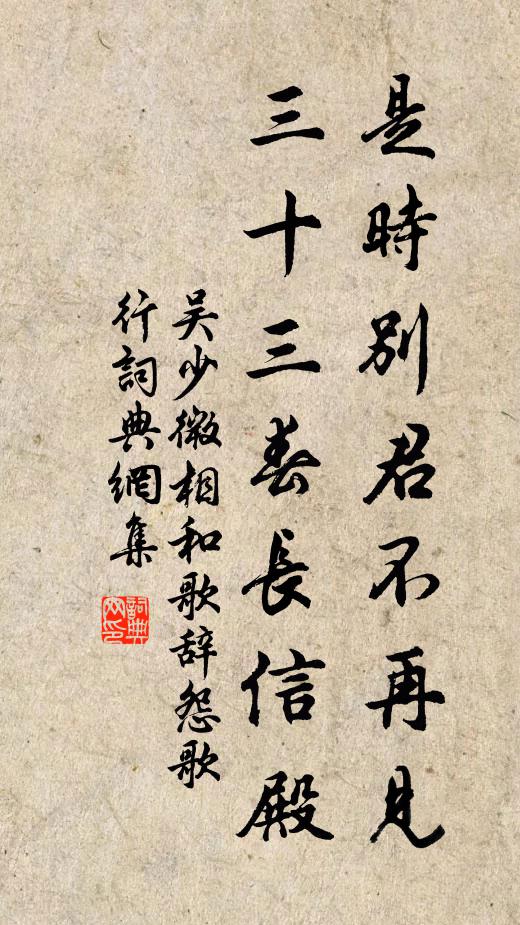 是時別君不再見
三十三春長信殿
吴少微相和歌辞怨歌
行詞典網集
詞典
网印